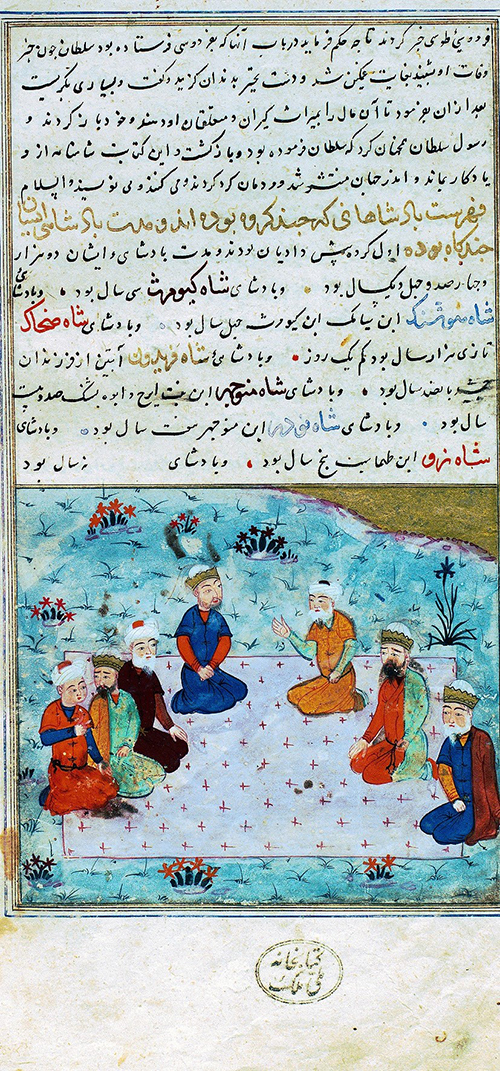 فردوسی طوسی خبر کردند تا چه حکم فرماید در باب آنها که بفردوسی فرستاده بود سلطان چون خبر
وفات او شنید بغایت غمگین شد و دست تحیر بدندان گزید و گفت و بسیاری بگریست
بعد از ان بفرمود تا آن مال را بمیراث گیران و متعلقان او دهند و خود باز کردند و
رسول سلطان همچنان کرد که سلطان فرموده بود و باز گشت و این کتاب شاهنامه از و
یادکار بماند و اندر جهان منتشر شد و مردمان کرد کردند و می کنند و می نویسند والسلام
فهرست پادشاهانی که چند کروه بوده اند و مدت پادشاهی ایشان
چند کاه بوده اول کرده پیش دادیان بودند و مدت پادشاهی ایشان دو هزار
و چهار صد و چهل و یکسال بود و پادشاهی شاه کیومرث سی سال بود و پادشاهی
شاه هوشنگ ابن سیامک ابن کیومرث چهل سال بود و پادشاهی شاه ضحاک
تازی هزار سال بود کم یک روز و پادشاهی شاه فریدون آبتین از فرزندان
جمشید پانصد سال بود و پادشاهی شاه منوچهر ابن ایرج صد و بیست
سال بود و پادشاهی شاه نوذر ابن منوچهر هفت سال بود و پادشاهی
شاه زو ابن طهماسب پنج سال بود و پادشاهی نه سال بود
کتابخانه
ملی ملک